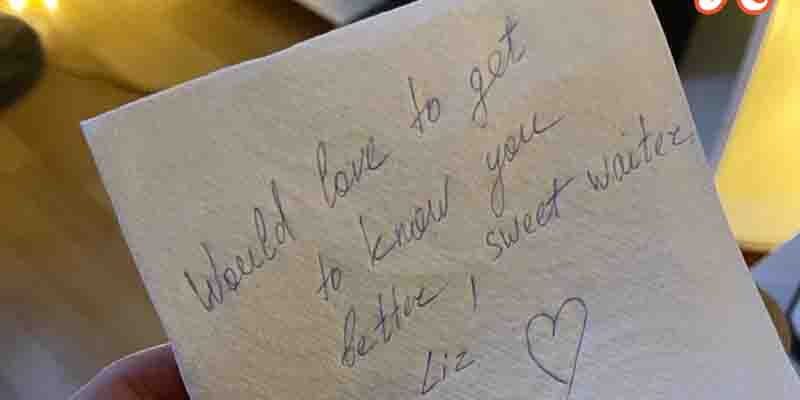 Would love to get
to know you
better, sweet waiter.
Liz ♡